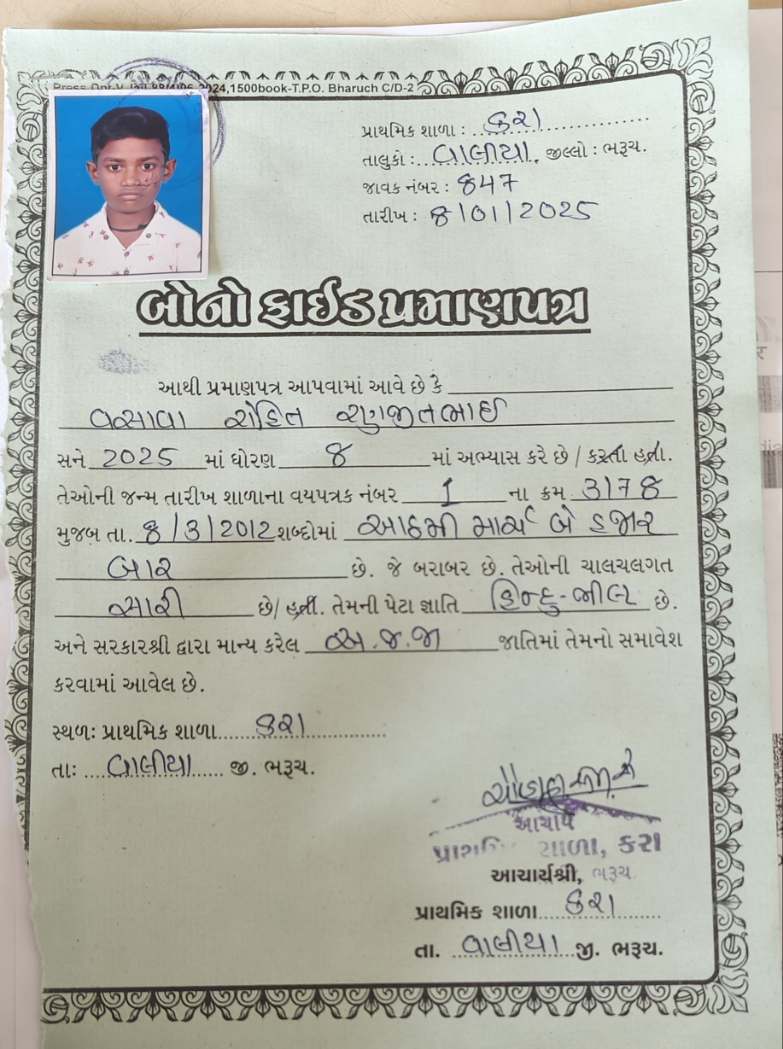 2024,1500book-T.P.O. Bharuch C/D-2
પ્રાથમિક શાળા : કરા
તાલુકો : વાલીયા, જીલ્લો : ભરૂચ.
જાવક નંબર : 847
તારીખ : 8/01/2025
બોનો ફાઈડ પ્રમાણપત્ર
આથી પ્રમાણપત્ર આપવામાં આવે છે કે
વસાવા રોહિત રણજીતભાઈ
સને 2025 માં ધોરણ 8 માં અભ્યાસ કરે છે / કરતા હતા.
તેઓની જન્મ તારીખ શાળાના વયપત્રક નંબર 1 ના ક્રમ 3178
મુજબ તા. 8/3/2012 શબ્દોમાં આઠમી માર્ચ બે હજાર
બાર છે. જે બરાબર છે. તેઓની ચાલચલગત
સારી છે/ હતી. તેમની પેટા જ્ઞાતિ હિન્દુ-ભીલ છે.
અને સરકારશ્રી દ્વારા માન્ય કરેલ અ.જ.જા જાતિમાં તેમનો સમાવેશ
કરવામાં આવેલ છે.
સ્થળઃ પ્રાથમિક શાળા કરા
તાઃ વાલીયા જી. ભરૂચ.
આચાર્ય
શાળા, કરા
આચાર્યશ્રી, ભરૂચ
પ્રાથમિક શાળા કરા
તા. વાલીયા જી. ભરૂચ.